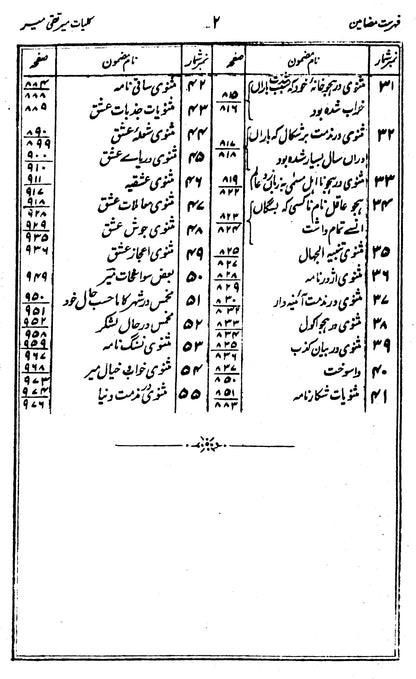 فہرست مضامین
۲
کلیات میر تقی میر
نمبرشمار نام مضمون صفحہ
۳۱ مثنوی در ہجو خانۂ خود کہ بسبب شدت باراں ۸۱۵
خراب شدہ بود ۸۱۶
۳۲ مثنوی در مذمت برشگال کہ باراں ۸۱۷
دراں سال بسیار شدہ بود ۸۱۸
۳۳ مثنوی در ہجو نا اہل مسمی بہ زباں زد عالم ۸۱۹ ۸۲۲
۳۴ ہجو عاقل نام ناکسی کہ بسگاں ۸۲۳
انسے تمام داشت ۸۲۴
۳۵ مثنوی تنبیہ الجہال ۸۲۵ ۸۲۷
۳۶ مثنوی اژدر نامہ ۸۲۸ ۸۲۹
۳۷ مثنوی در مذمت آئینہ دار ۸۳۰ ۸۳۲
۳۸ مثنوی در ہجو اکول ۸۳۳ ۸۳۴
۳۹ مثنوی در بیان کذب ۸۳۵ ۸۳۶
۴۰ واسوخت ۸۳۷ ۸۵۰
۴۱ مثنویات شکار نامہ ۸۵۱ ۸۸۳
نمبرشمار نام مضمون صفحہ
۴۲ مثنوی ساقی نامہ ۸۸۴ ۸۸۸
۴۳ مثنویات جذبات عشق ۸۸۹
۴۴ مثنوی شعلۂ عشق ۸۹۰ ۸۹۹
۴۵ مثنوی دریائے عشق ۹۰۰ ۹۱۰
۴۶ مثنوی عشقیہ ۹۱۱ ۹۱۷
۴۷ مثنوی معاملات عشق ۹۱۸ ۹۲۸
۴۸ مثنوی جوش عشق ۹۲۹ ۹۳۵
۴۹ مثنوی اعجاز عشق ۹۳۶
۵۰ بعض سوانحات میر ۹۴۹
۵۱ مخمس در شہر کاما حسب حال خود ۹۵۰ ۹۵۱
۵۲ مخمس در حال لشکر ۹۵۲ ۹۵۸
۵۳ مثنوی ننگ نامہ ۹۵۹ ۹۶۷
۵۴ مثنوی خواب خیال میر ۹۶۸ ۹۷۳
۵۵ مثنوی در مذمت دنیا ۹۷۴ ۹۷۶